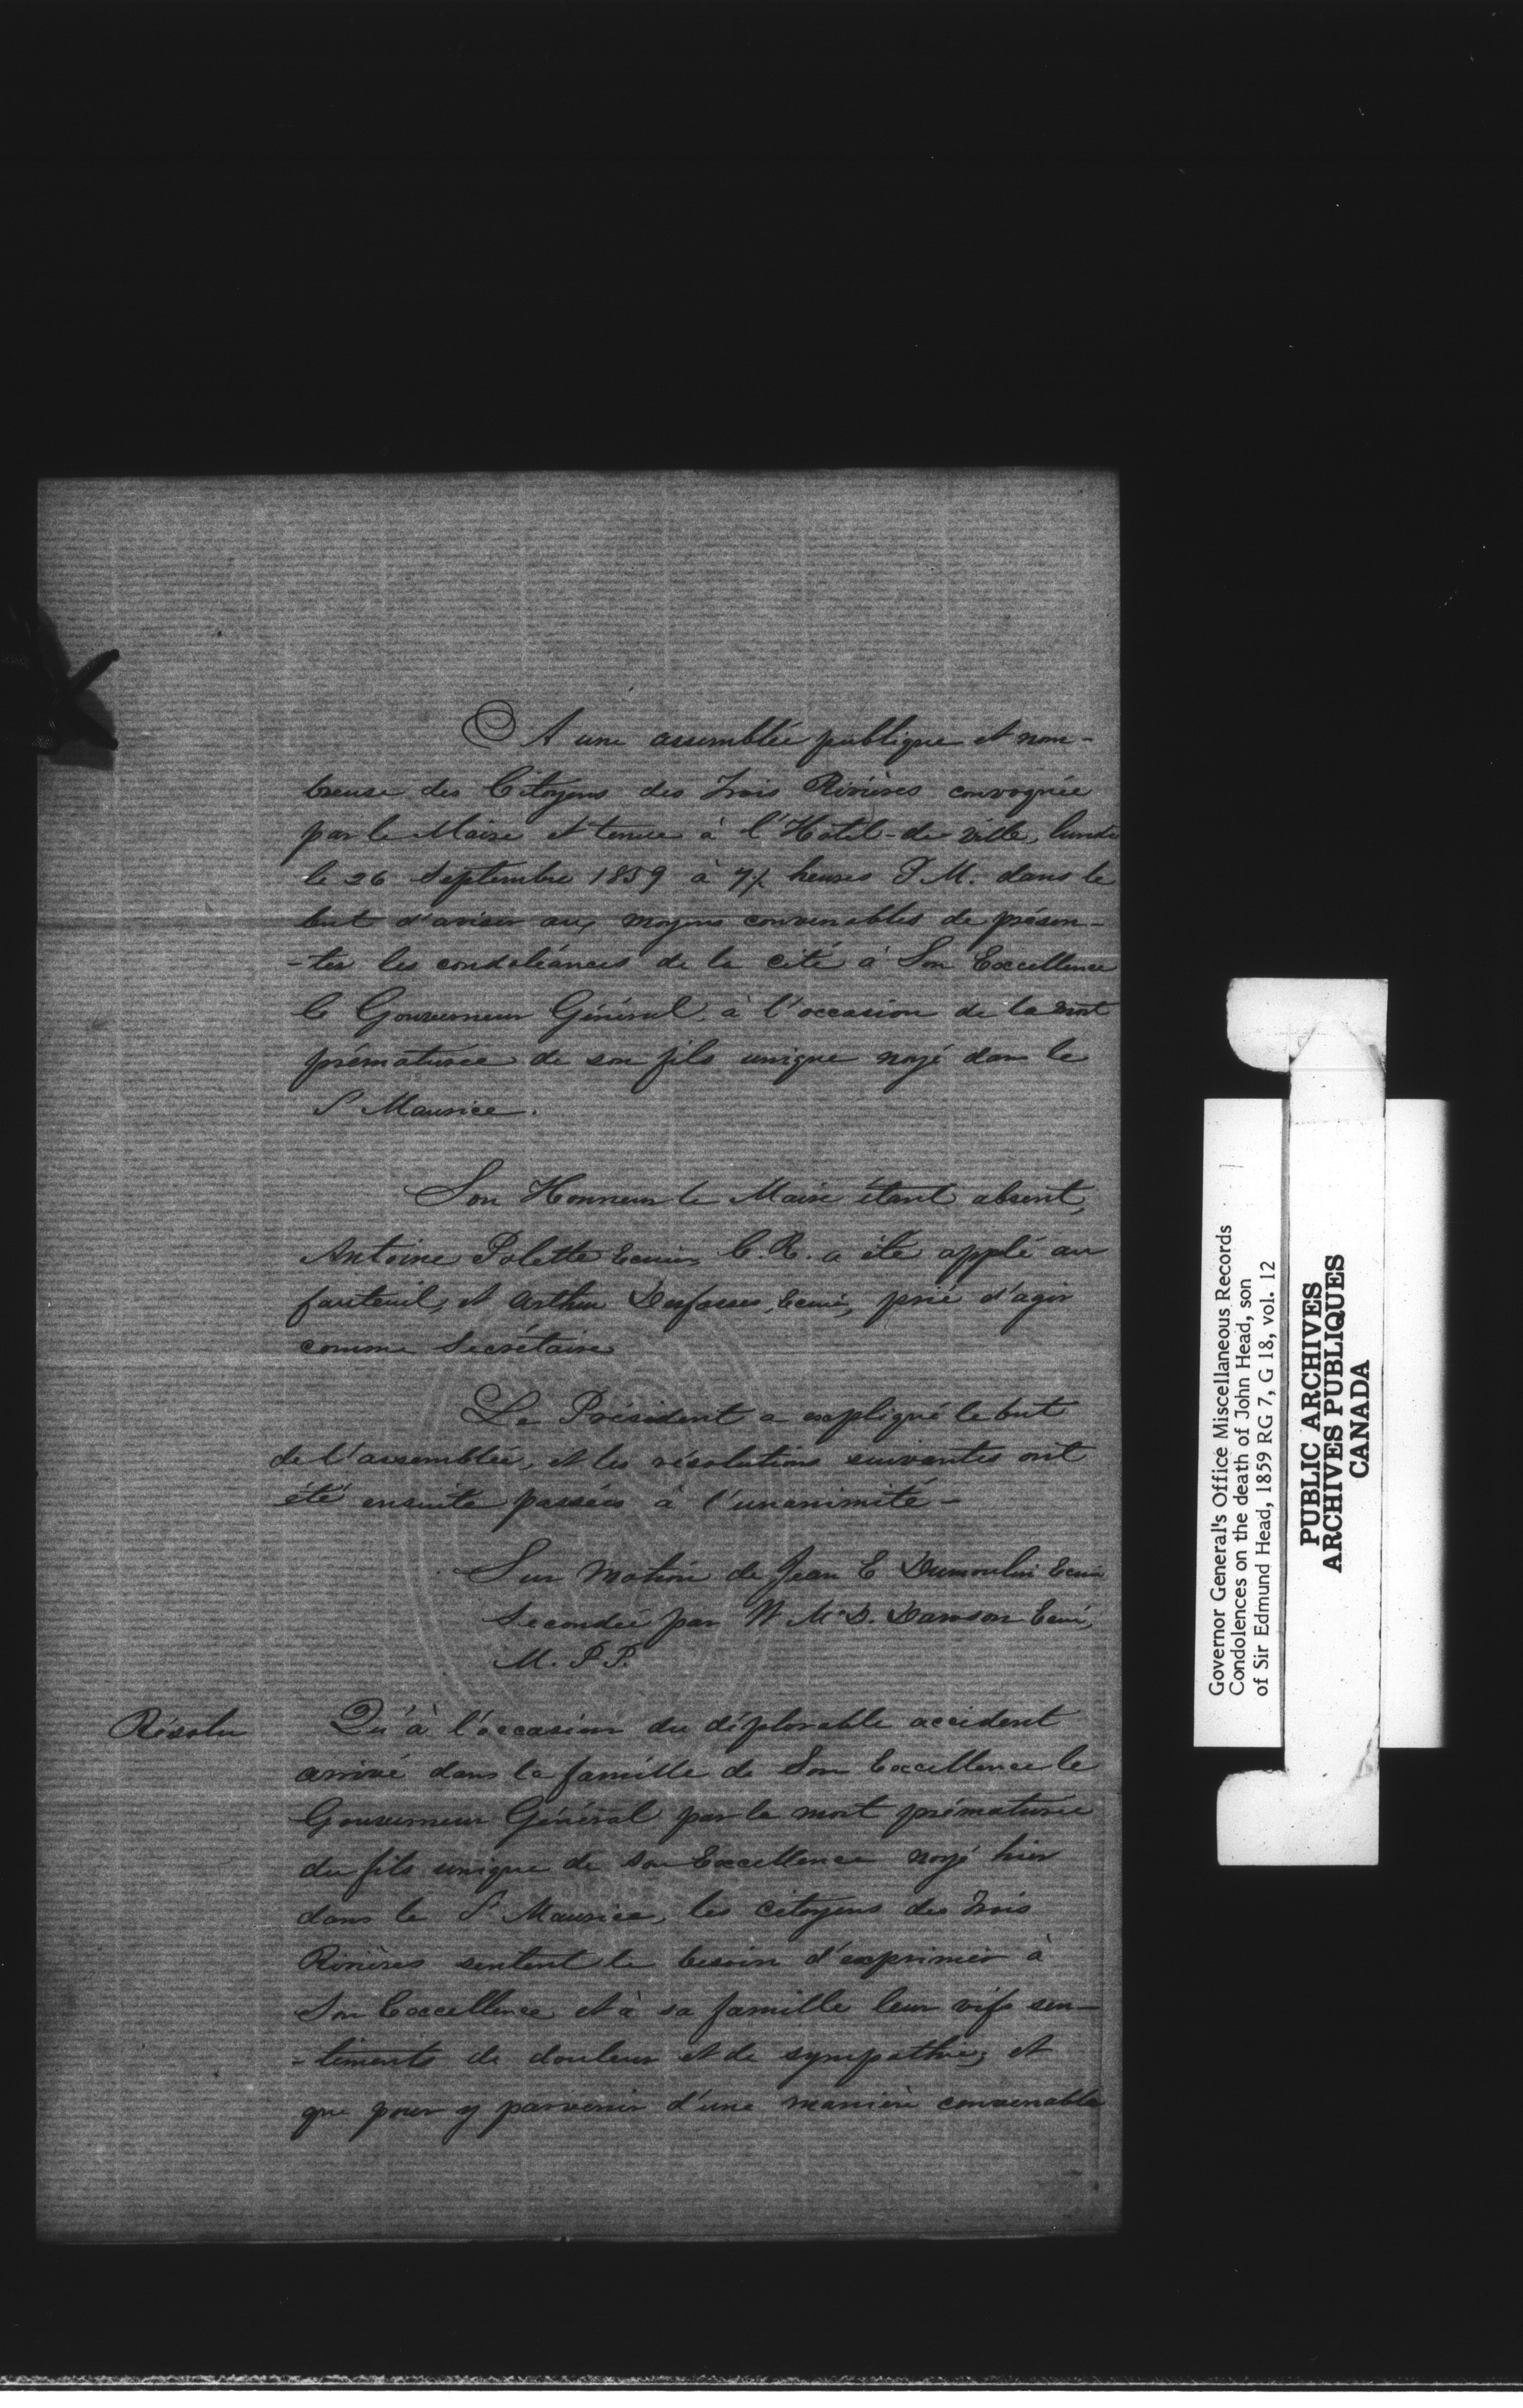 A une assemblée publique et nom-
breuse des Citoyens des Trois Rivières convoquée
par le Maire et tenue à l'Hotel-de-ville, lundi
le 26 Septembre 1859 à 7½ heures P.M. dans le
but d'aviser aux moyens convenables de présen-
-ter les condoléances de la cité à Son Excellence
le Gouverneur Général, à l'occasion de la mort
prématurée de son fils unique noyé dans le
St Maurice.
Son Honneur le Maire étant absent,
Antoine Polette Ecuier C.R. a été applé au
fauteuil, et Arthur Desfosses, Ecuier, prié d'agir
comme Secrétaire
Le Président a expliqué le but
de l'assemblée, et les résolutions suivantes ont
été ensuite passées à l'unanimité -
Sur Motion de Jean E Dumoulin Ecuier
Secondée par W McD. Dawson Ecuier,
M.P.P.
Résolu Qu'à l'occasion du déplorable accident
arrivé dans la famille de Son Excellence le
Gouverneur Général par la mort prématurée
du fils unique de son Excellence noyé hier
dans le St Maurice, les citoyens des Trois
Rivières sentent le besoin d'exprimer à
Son Excellence et à sa famille leur vifs sen-
-timents de douleur et de sympathie; et
que pour y parvenir d'une manière convenable
Governor General's Office Miscellaneous Records
Condolences on the death of John Head, son
of Sir Edmund Head, 1859 RG 7, G 18, vol. 12
PUBLIC ARCHIVES
ARCHIVES PUBLIQUES
CANADA